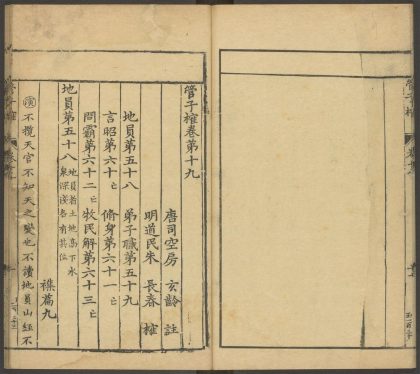 管子榷卷第十九
唐司空房 玄齡 註
明道民朱 長春 榷
地員第五十八 弟子職第五十九
言昭第六十亡 脩身第六十一亡
問霸第六十二亡 牧民解第六十三亡
地員第五十八 地員者土地高下水泉深淺各有其位
襍篇九
演不攬天官不知天之變也不讀地員山經不
管子榷